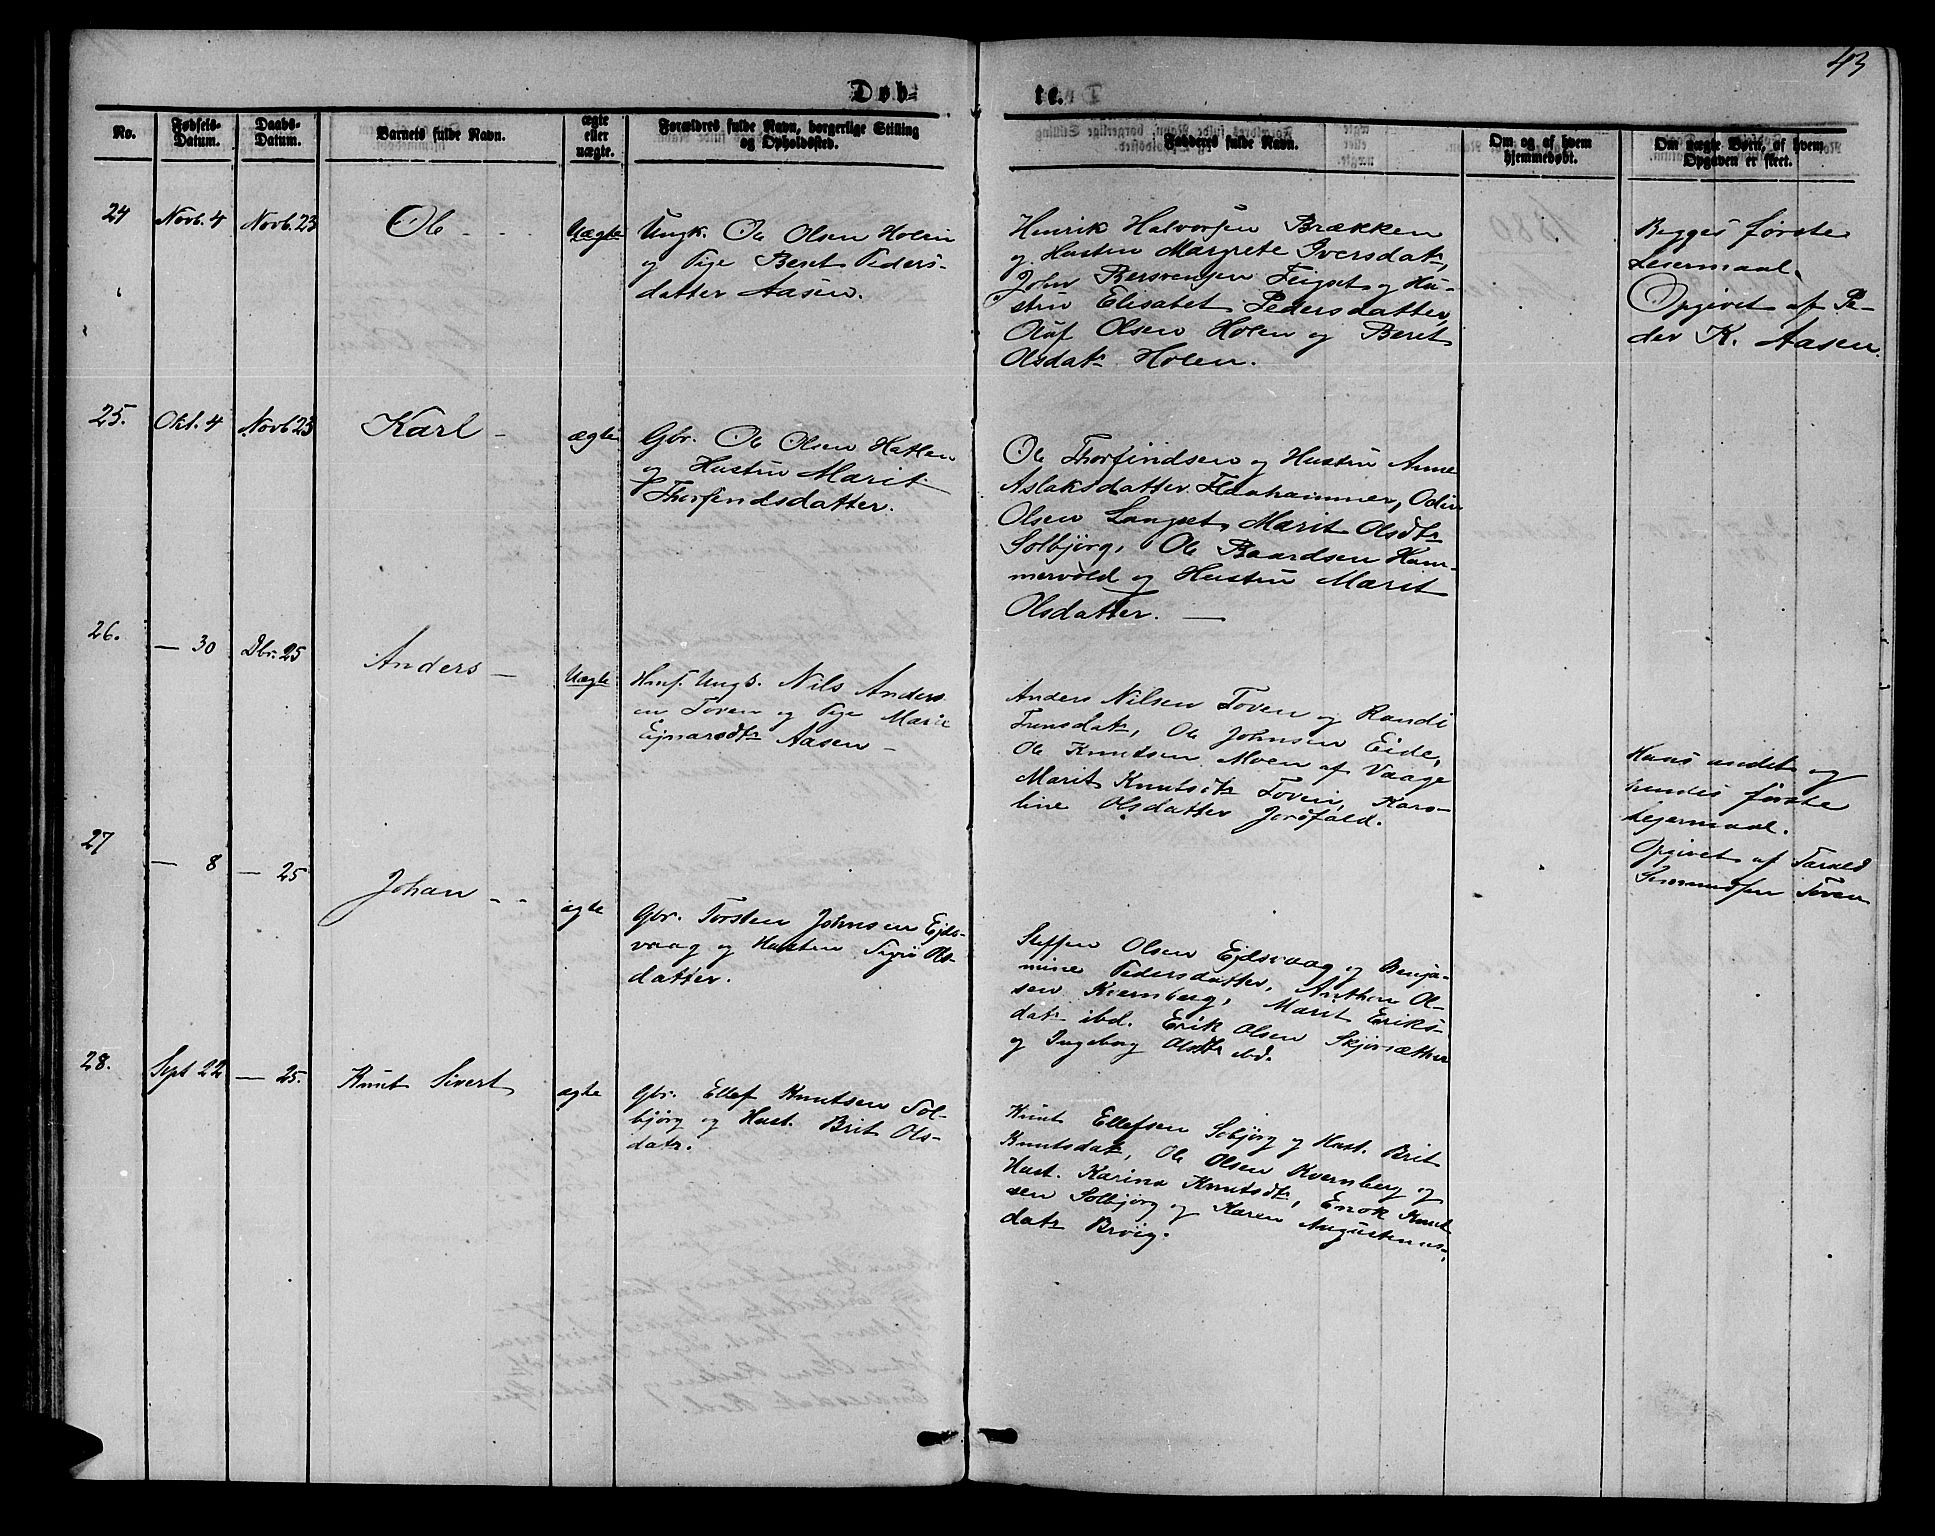 43
Døb-
te.
No.
Fødsels-
Datum.
Daabs-
Datum.
Barnets fulde Navn.
ægte
eller
uægte.
Forældres fulde Navn, borgerlige Stilling
og Opholdssted.
Fadderes fulde Navn.
Om og af hvem
hjemmedøbt.
Om uægte Børn, af hvem
Opgaven er skeet.
24
Novb. 4
Novb. 23
Ole
Uægte
Ungk. Ole Olsen Holen
og Pige Beret Peders-
datter Aasen.
Henrik Halvorsen Brækken
og Hustru Margrete Iversdatr,
John Bersvensen Fugset og Hu-
stru Elisabet Pedersdatter,
Oluf Olsen Holen og Beret
Olsdatr Holen.
Begges første
Leiermaal.
Opgivet af Pe-
der K. Aasen.
25.
Okt. 4
Novb 23
Karl -
ægte
Gbr. Ole Olsen Hatlen
og Hustru Marit
Thorfindsdatter.
Ole Thorfindsen og Hustru Anne
Aslaksdatter Flaahammer, Odin
Olsen Langset, Marit Olsdtr
Solbjørg, Ole Baardsen Ham-
mervold og Hustru Marit
Olsdatter. —
26.
— 30
Dbr. 25
Anders —
Uægte
Ungk. Nils Anders
en Toven og Pige Marie
Ejnarsdtr Aasen -
Anders Nilsen Toven og Randi
Ole Johnsen Eide,
Ole Knutsen Moen af Vaage
Marit Knutsdtr Toven, Karo-
line Olsdatter
Hans andet og
hendes første
Lejermaal.
Opgivet af Tarald
Toven
27
— 8
— 25
Johan - -
ægte
Gbr. Torsten Johnsen Ejds-
vaag og Hustru Sigri Ols-
datter.
Steffen Olsen Ejdsvaag og Benja-
mine Pedersdatter, Anthon Ol-
sen Kvernberg, Marit Eriks-
datr ibd. Erik Olsen Skjørsætter
og Ingeborg Olsdtr ibd.
28.
Sept 22
— 25.
Knut Sivert
ægte
Gbr. Ellef Knutsen Sol-
bjørg og Hust. Brit Ols-
datr.
Knut Ellefsen Solbjørg og Hust. Brit
Knutsdatr, Ole Olsen Kvernberg og
Hust. Karina Knutsdtr, Enok Knut
sen Solbjørg og Karen Augustinus-
datr Brøig.